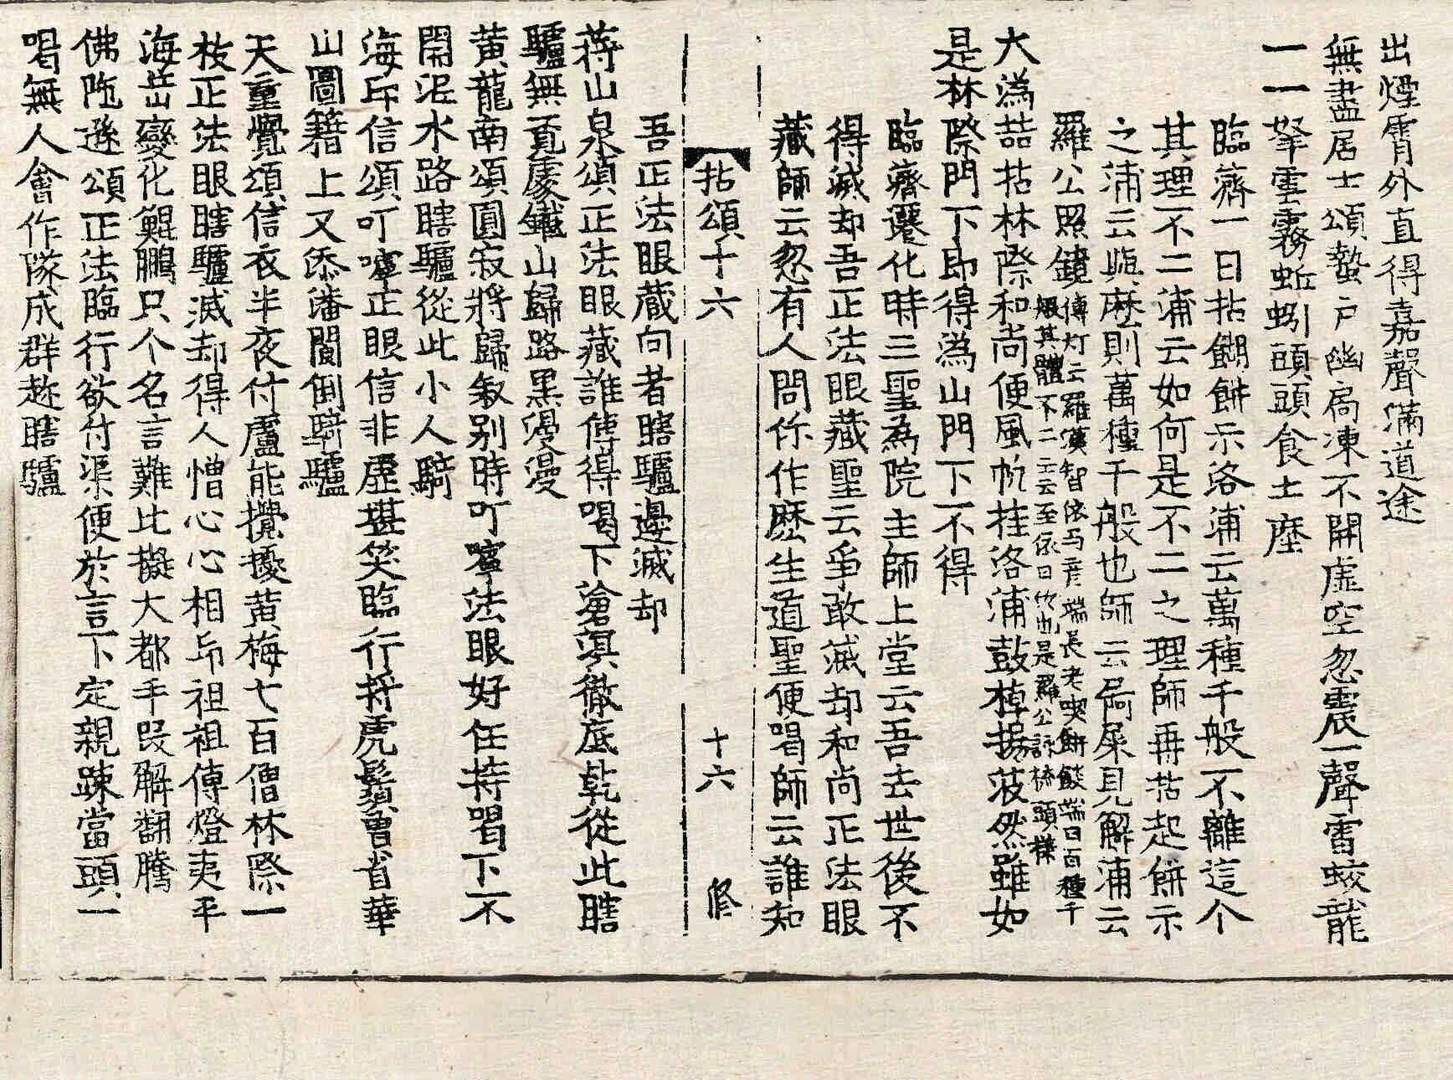 出煙霄外直得嘉聲滿道途
無盡居士頌蟄戶幽扃凍不開虛空忽震一聲雷蛟龍
一一拏雲霧蚯蚓頭頭食土麼
臨濟一日拈餬餅示洛浦云萬種千般不離這个
其理不二浦云如何是不二之理師再拈起餅示
之浦云與麽則萬種千般也師云屙屎見解浦云
羅公照鏡傳灯云羅漢智依与彥端長老喫餅餤端曰百種千
般其體不二云云至依曰汝也是羅公詠梳頭樣
大溈喆拈林際和尚便風帆挂洛浦鼓棹揚波然雖如
是林際門下即得溈山門下不得
臨濟遷化時三聖爲院主師上堂云吾去世後不
得滅却吾正法眼藏聖云爭敢滅却和尚正法眼
藏師云忽有人問你作麽生道聖便喝師云誰知
拈頌十六 十六 修
吾正法眼蔵向者瞎驢邊滅却
蒋山泉頌正法眼藏誰傳得喝下滄溟徹底乾從此瞎
驢無覓處鐵山歸路黒漫漫
黄龍南頌圓寂將歸敘别時叮嚀法眼好任持喝下不
開泥水路瞎驢從此小人騎
海印信頌叮嚀正眼信非虛堪笑臨行捋虎鬚曽省華
山圖籍上又添潘閬倒騎驢
天重覺頌信衣半夜付盧能攪擾黄梅七百僧林際一
枝正法眼瞎驢滅却得人憎心心相印祖祖傳燈夷平
海岳變化鯤鵬只个名言難比擬大都手段解翻騰
佛陁遜頌正法臨行欲付渠便於言下定親踈當頭一
喝無人會作隊成群趂瞎驢